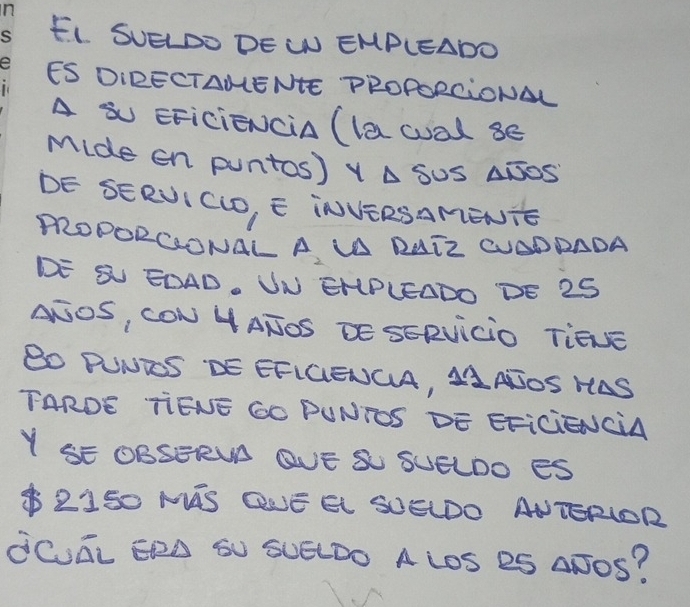 n
s
e
i
EL SUELDO DE UN EMPLEADO
ES DIRECTAMENTE PROPORCIONAL
A SU EFICIENCIA (la cual se
Mide en puntos) Y A SUS AÑOS
DE SERVICIO, E INVERSAMENTE
PROPORCIONAL A LA RAÍZ CUADRADA
DE SU EDAD. UN EMPLEADO DE 25
AÑOS, CON 4 AÑOS DE SERVICIO TIENE
80 PUNTOS DE EFICIENCIA, 11 AÑOS MAS
TARDE TIENE 60 PUNTOS DE EFICIENCIA
Y SE OBSERVA QUE SU SUELDO ES
$2150 MÁS QUE EL SUELDO ANTERIOR
¿CUÁL ERA SU SUELDO A LOS 25 AÑOS?